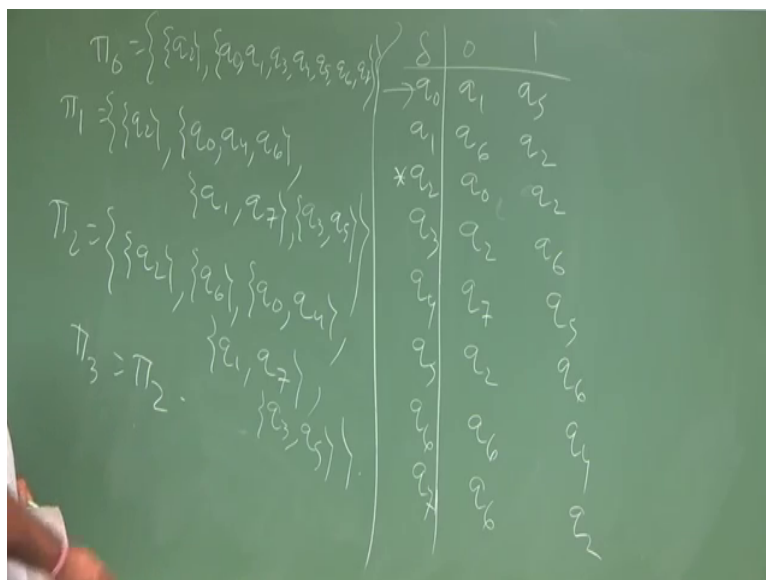 π₀ = {{q₂}, {q₀, q₁, q₃, q₄, q₅, q₆, q₇}}
π₁ = {{q₂}, {q₀, q₄, q₆},
{q₁, q₇}, {q₃, q₅}}
π₂ = {{q₂}, {q₆}, {q₀, q₄},
{q₁, q₇},
{q₃, q₅}}.
π₃ = π₂.
δ 0 1
→q₀ q₁ q₅
q₁ q₆ q₂
*q₂ q₀ q₂
q₃ q₂ q₆
q₄ q₇ q₅
q₅ q₂ q₆
q₆ q₆ q₄
q₇ q₆ q₂